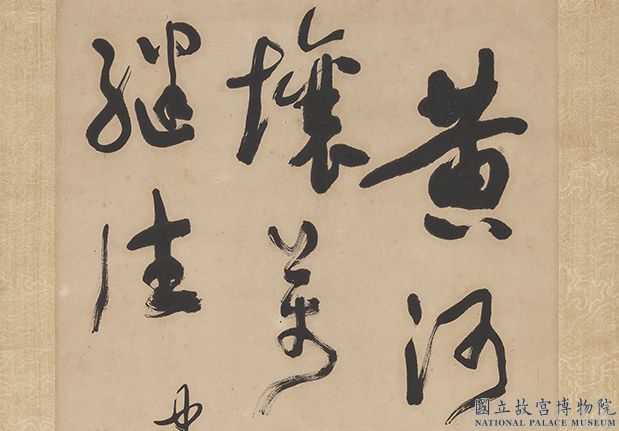 黄河
壤萬
繼佳
國立故宮博物院
NATIONAL PALACE MUSEUM